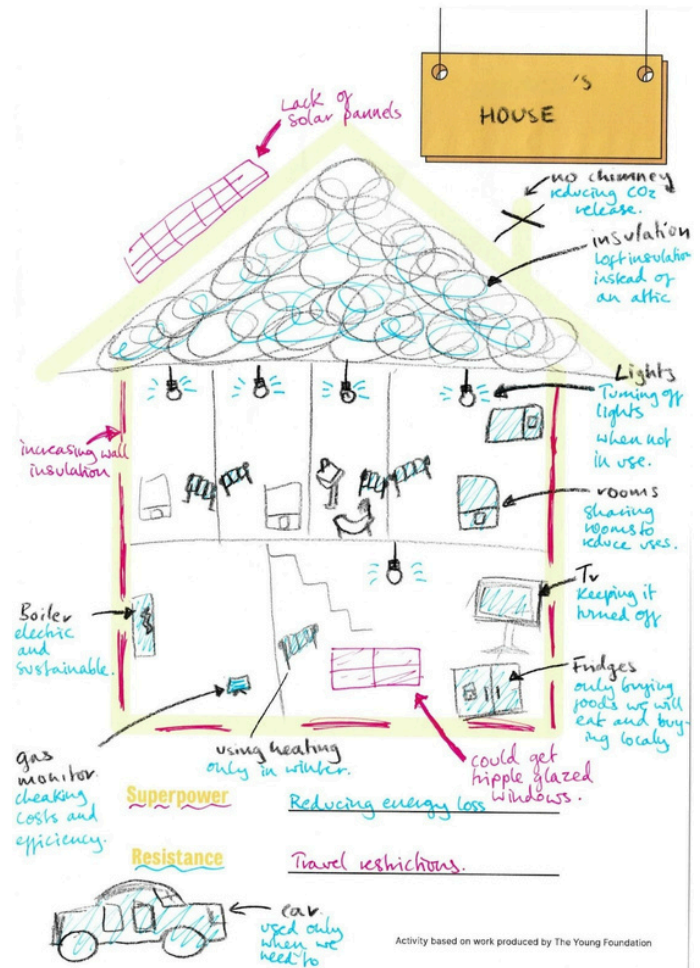 's
HOUSE
Lack of
solar pannels
no chimney
reducing CO2
release.
insulation
Loft insulation
instead of
an attic
Lights
Turning off
lights
when not
in use.
increasing wall
insulation
rooms
sharing
rooms to
reduce uses.
Tv
Keeping it
turned off
Boiler
electric
and
sustainable.
Fridges
only buying
foods we will
eat and buy-
ing localy
gas
monitor.
cheaking
costs and
efficiency.
using heating
only in winter.
could get
tripple glazed
windows.
Superpower
Reducing energy loss
Resistance
Travel restrictions.
car.
used only
when we
need to
Activity based on work produced by The Young Foundation